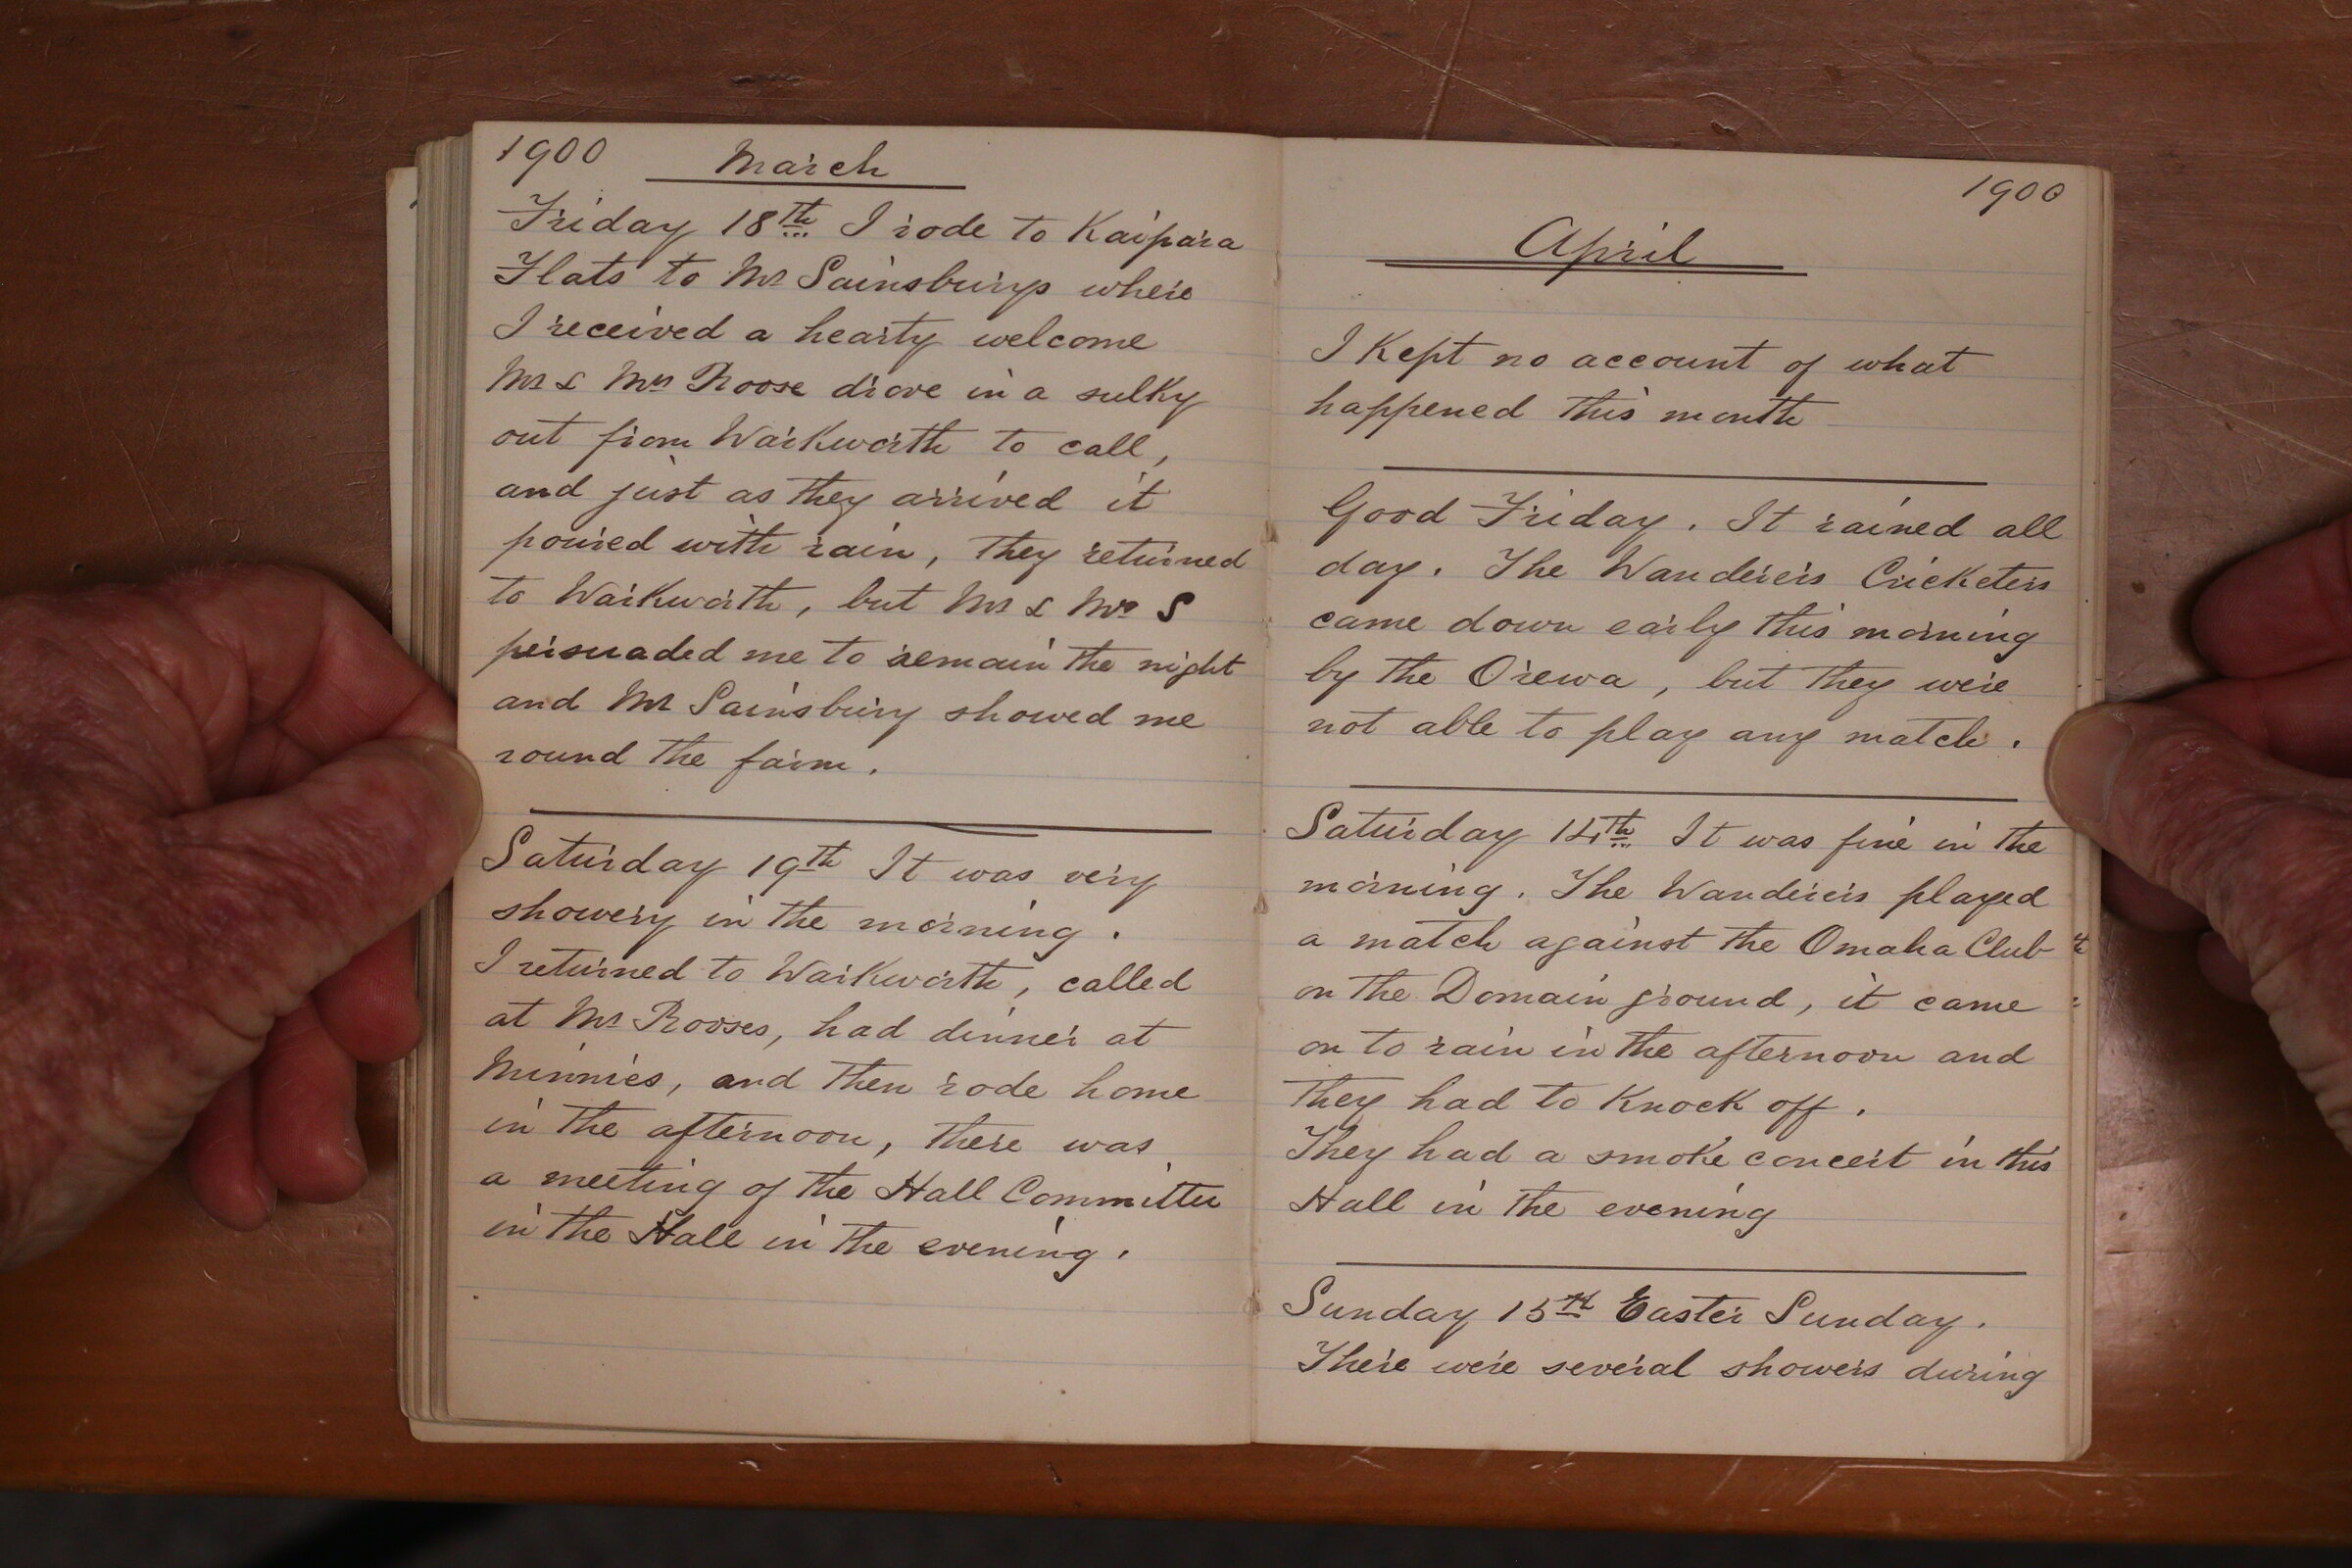 1900 March
Friday 18th I rode to Kaipara
Flats to Mr Sainsburys where
I received a hearty welcome
Mr & Mrs Roose drove in a sulky
out from Warkworth to call,
and just as they arrived it
poured with rain, they returned
to Warkworth, but Mr & Mrs S
persuaded me to remain the night
and Mr Sainsbury showed me
round the farm.
Saturday 19th It was very
showery in the morning.
I returned to Warkworth, called
at Mr Rooses, had dinner at
Minnies, and then rode home
in the afternoon, there was
a meeting of the Hall Committee
in the Hall in the evening.
1900
April
I kept no account of what
happened this month
Good Friday. It rained all
day. The Wanderers Cricketers
came down early this morning
by the Orewa, but they were
not able to play any match.
Saturday 14th It was fine in the
morning. The Wanderers played
a match against the Omaha Club
on the Domain ground, it came
on to rain in the afternoon and
they had to knock off.
They had a smoke concert in this
Hall in the evening
Sunday 15th Easter Sunday.
There were several showers during